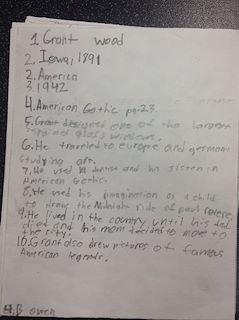 1. Grant wood
2. Iowa, 1891
2. America
3. 1942
4. American Gothic pg. 23
5. Grant designed one of the largest
stained glass windows.
6. He traveled to europe and germany
studying art.
7. He used a dentist and his sister in
American Gothic.
8. He used his imagination as a child
to draw the Midnight ride of paul revere.
9. He lived in the country until his dad
died and his mom decided to move to
the city.
10. Grant also drew pictures of famous
American legends.
B owen